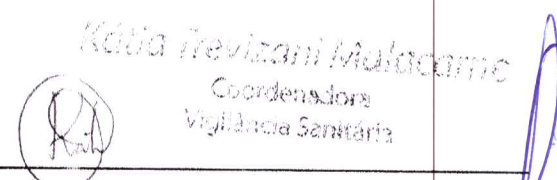 Kátia Trevizani Malacarne
Coordenadora
Vigilância Sanitária